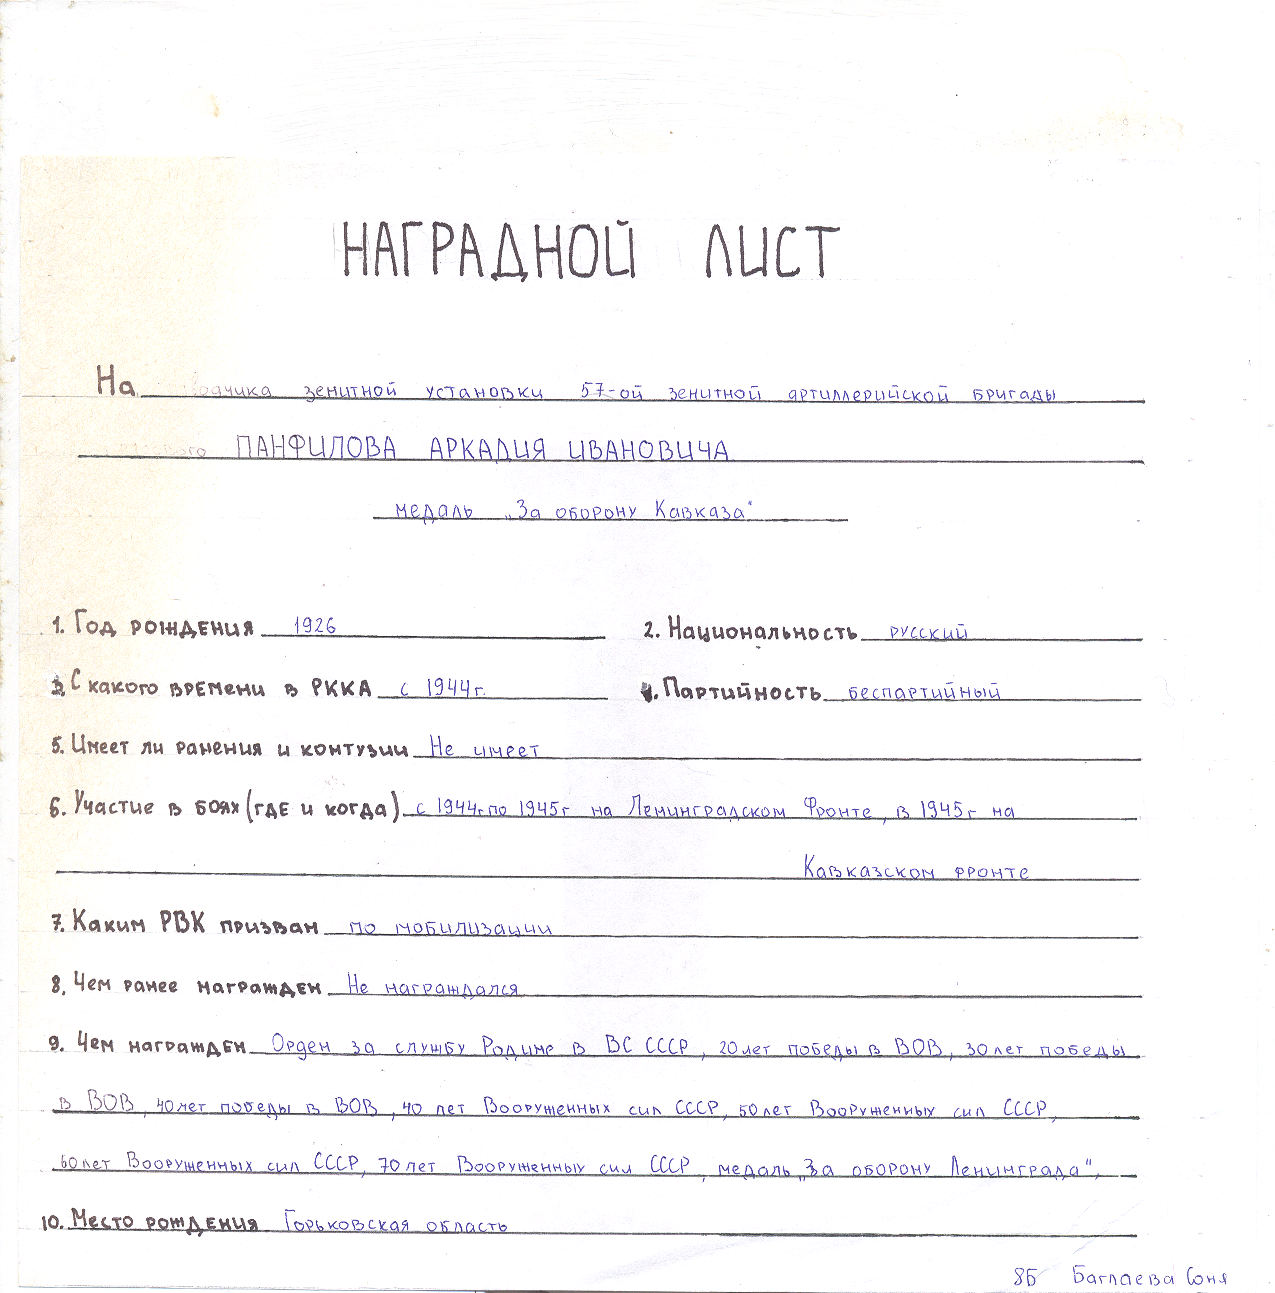 НАГРАДНОЙ ЛИСТ
На наводчика зенитной установки 57-ой зенитной артиллерийской бригады
ПАНФИЛОВА АРКАДИЯ ИВАНОВИЧА
медаль „За оборону Кавказа"
1. Год рождения 1926 2. Национальность русский
3. С какого времени в РККА с 1944г. 4. Партийность беспартийный
5. Имеет ли ранения и контузии Не имеет
6. Участие в боях (где и когда) с 1944г. по 1945г на Ленинградском Фронте, в 1945г на
Кавказском фронте
7. Каким РВК призван по мобилизации
8. Чем ранее награжден Не награждался
9. Чем награжден Орден за службу Родине в ВС СССР, 20 лет победы в ВОВ, 30 лет победы
в ВОВ, 40 лет победы в ВОВ, 40 лет Вооруженных сил СССР, 50 лет Вооруженных сил СССР,
60 лет Вооруженных сил СССР, 70 лет Вооруженных сил СССР, медаль „За оборону Ленинграда",
10. Место рождения Горьковская область
8Б Баглаева Соня